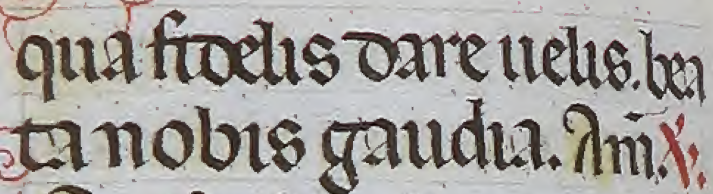 qua fidelis dare uelis. bea
ta nobis gaudia. Am̄. V.